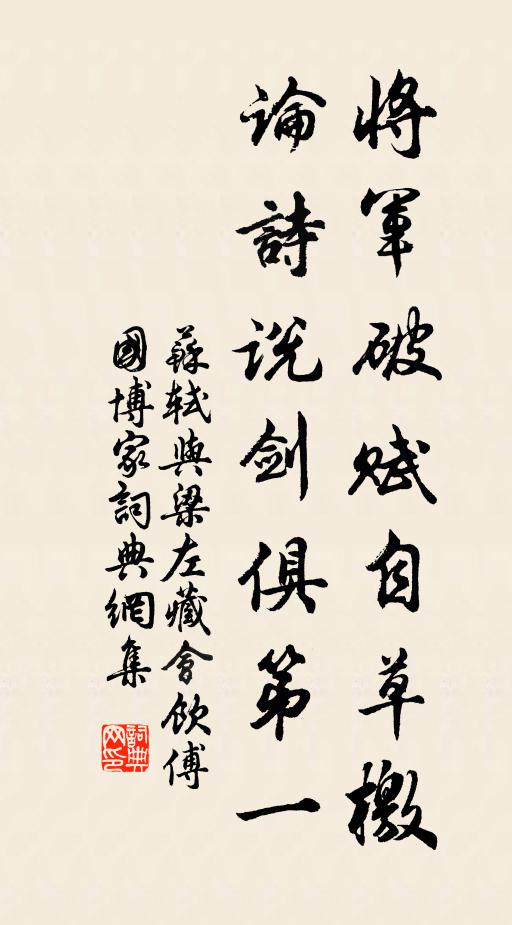 將軍破賊自草檄
論詩說劍俱第一
蘇軾與梁左藏會飲傅
國博家詞典網集
詞典网印